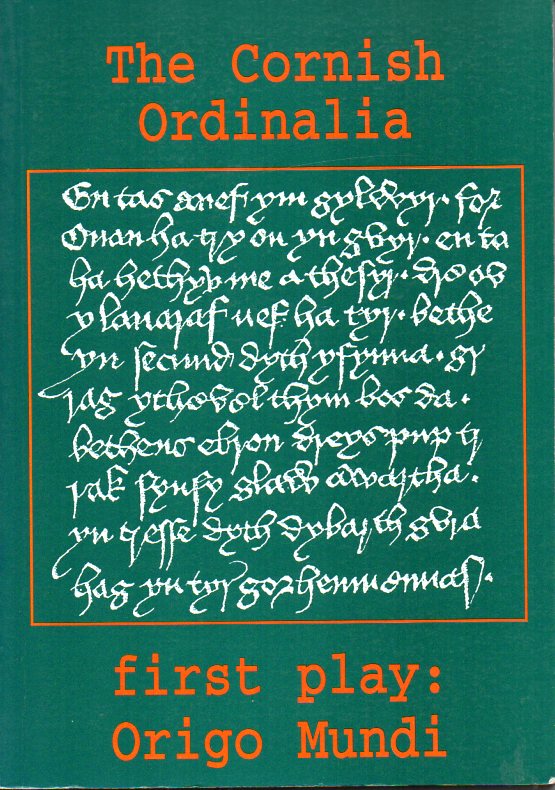 The Cornish
Ordinalia
En tas a nef ym gylwyr. for
Onan ha try on yn gvyr. en ta
ha hethyv me a thesyr. dre ov
y lauaraf nef ha tyr. bethe
yn secund dyth y fynna. gr
rag ythevel thym bos da.
bethens ebron dreys pup tr
rak synsy glaw awartha.
yn tresse dyth dybarth gvra
hag yn tyr gorhenmennaf.
first play:
Origo Mundi